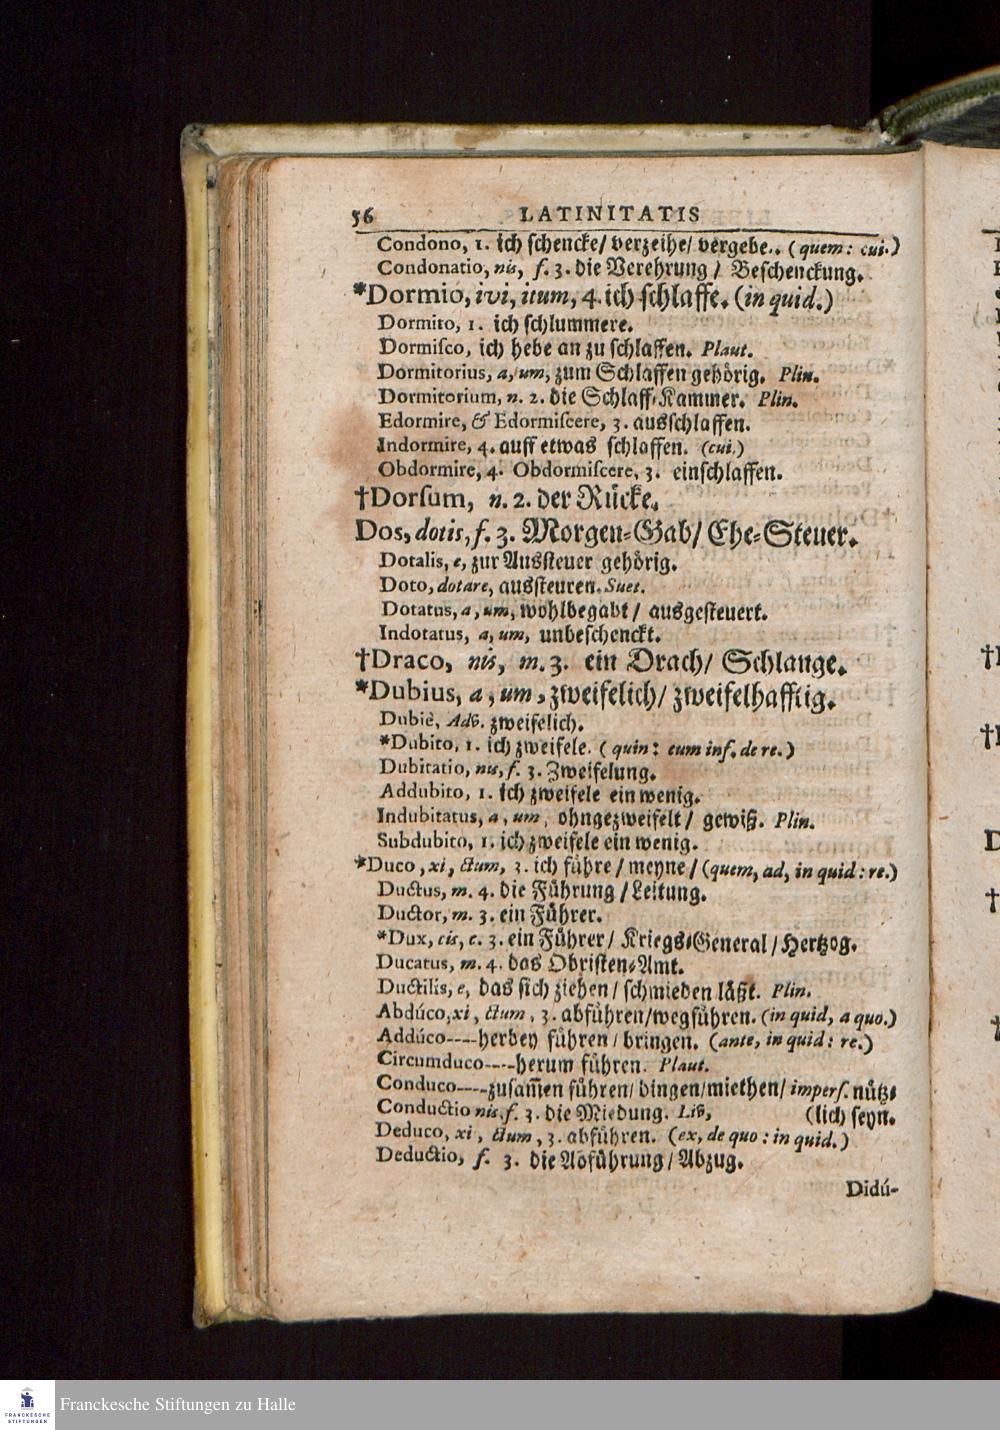 56 LATINITATIS
Condono, 1. ich schencke/ verzeihe/ vergebe.. (quem: cui.)
Condonatio, nis, f. 3. die Verehrung / Beschenckung.
*Dormio, ivi, itum, 4. ich schlaffe. (in quid.)
Dormito, 1. ich schlummere.
Dormiſco, ich hebe an zu schlaffen. Plaut.
Dormitorius, a, um, zum Schlaffen gehörig. Plin.
Dormitorium, n. 2. die Schlaff-Kammer. Plin.
Edormire, & Edormiſcere, 3. ausschlaffen.
Indormire, 4. auff etwas schlaffen. (cui.)
Obdormire, 4. Obdormiſcere, 3. einschlaffen.
†Dorſum, n. 2. der Rücke.
Dos, dotis, f. 3. Morgen-Gab/ Ehe-Steuer.
Dotalis, e, zur Aussteuer gehörig.
Doto, dotare, aussteuren. Suet.
Dotatus, a, um, wohlbegabt / ausgesteuert.
Indotatus, a, um, unbeschenckt.
†Draco, nis, m. 3. ein Drach/ Schlange.
*Dubius, a, um, zweifelich/ zweifelhafftig.
Dubiè, Adv. zweifelich.
*Dubito, 1. ich zweifele. (quin: eum inf. de re.)
Dubitatio, nis, f. 3. Zweifelung.
Addubito, 1. ich zweifele ein wenig.
Indubitatus, a, um, ohngezweifelt / gewiß. Plin.
Subdubito, 1. ich zweifele ein wenig.
*Duco, xi, ctum, 3. ich führe / meyne / (quem, ad, in quid: re.)
Ductus, m. 4. die Führung / Leitung.
Ductor, m. 3. ein Führer.
*Dux, cis, c. 3. ein Führer / Kriegs-General / Hertzog.
Ducatus, m. 4. das Obristen-Amt.
Ductilis, e, das sich ziehen / schmieden läßt. Plin.
Abdúco, xi, ctum, 3. abführen/wegführen. (in quid, a quo.)
Addúco----herbey führen / bringen. (ante, in quid: re.)
Circumduco----herum führen. Plaut.
Conduco----zusam̃en führen/ dingen/miethen/ imperſ. nütz-
Conductio nis, f. 3. die Miedung. Liv, (lich seyn.
Deduco, xi, ctum, 3. abführen. (ex, de quo: in quid.)
Deductio, f. 3. die Abführung / Abzug.
Didú-
Franckesche Stiftungen zu Halle
FRANCKESCHE
STIFTUNGEN